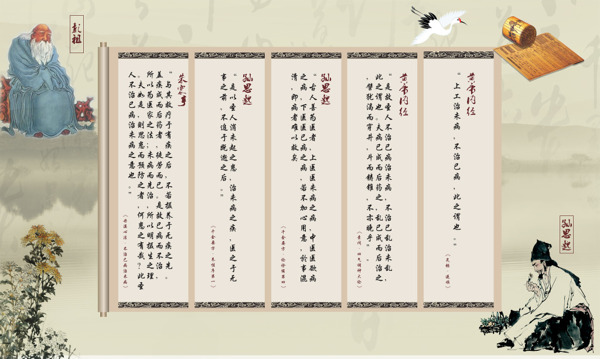 彭祖
黄帝内经
“上工治未病，不治已病，此之谓也。”
（灵枢·逆顺）
黄帝内经
“是故圣人不治已病治未病，不治已乱治未乱，
此之谓也。夫病已成而后药之，乱已成而后治之，
譬犹渴而穿井，斗而铸锥，不亦晚乎”
（素问·四气调神大论）
孙思邈
“古人善为医者，上医医未病之病，中医医欲病
之病，下医医已病之病，若不加心用意，於事混
淆，即病者难以救矣”
孙思邈
“是以圣人消未起之患，治未病之疾，医之于无
事之前，不追于既逝之后。”
“与其救疗于有疾之后，不若摄养于无疾之先。
盖疾成而后药者，徒劳而已，是故已病而不治，
所以为医家之法；未病而先治，所以明摄生之理
夫如是则思患而预防之者，何患之有哉？此圣
人不治已病治未病之意也”
（丹溪心法·不治已病治未病）
孙思邈